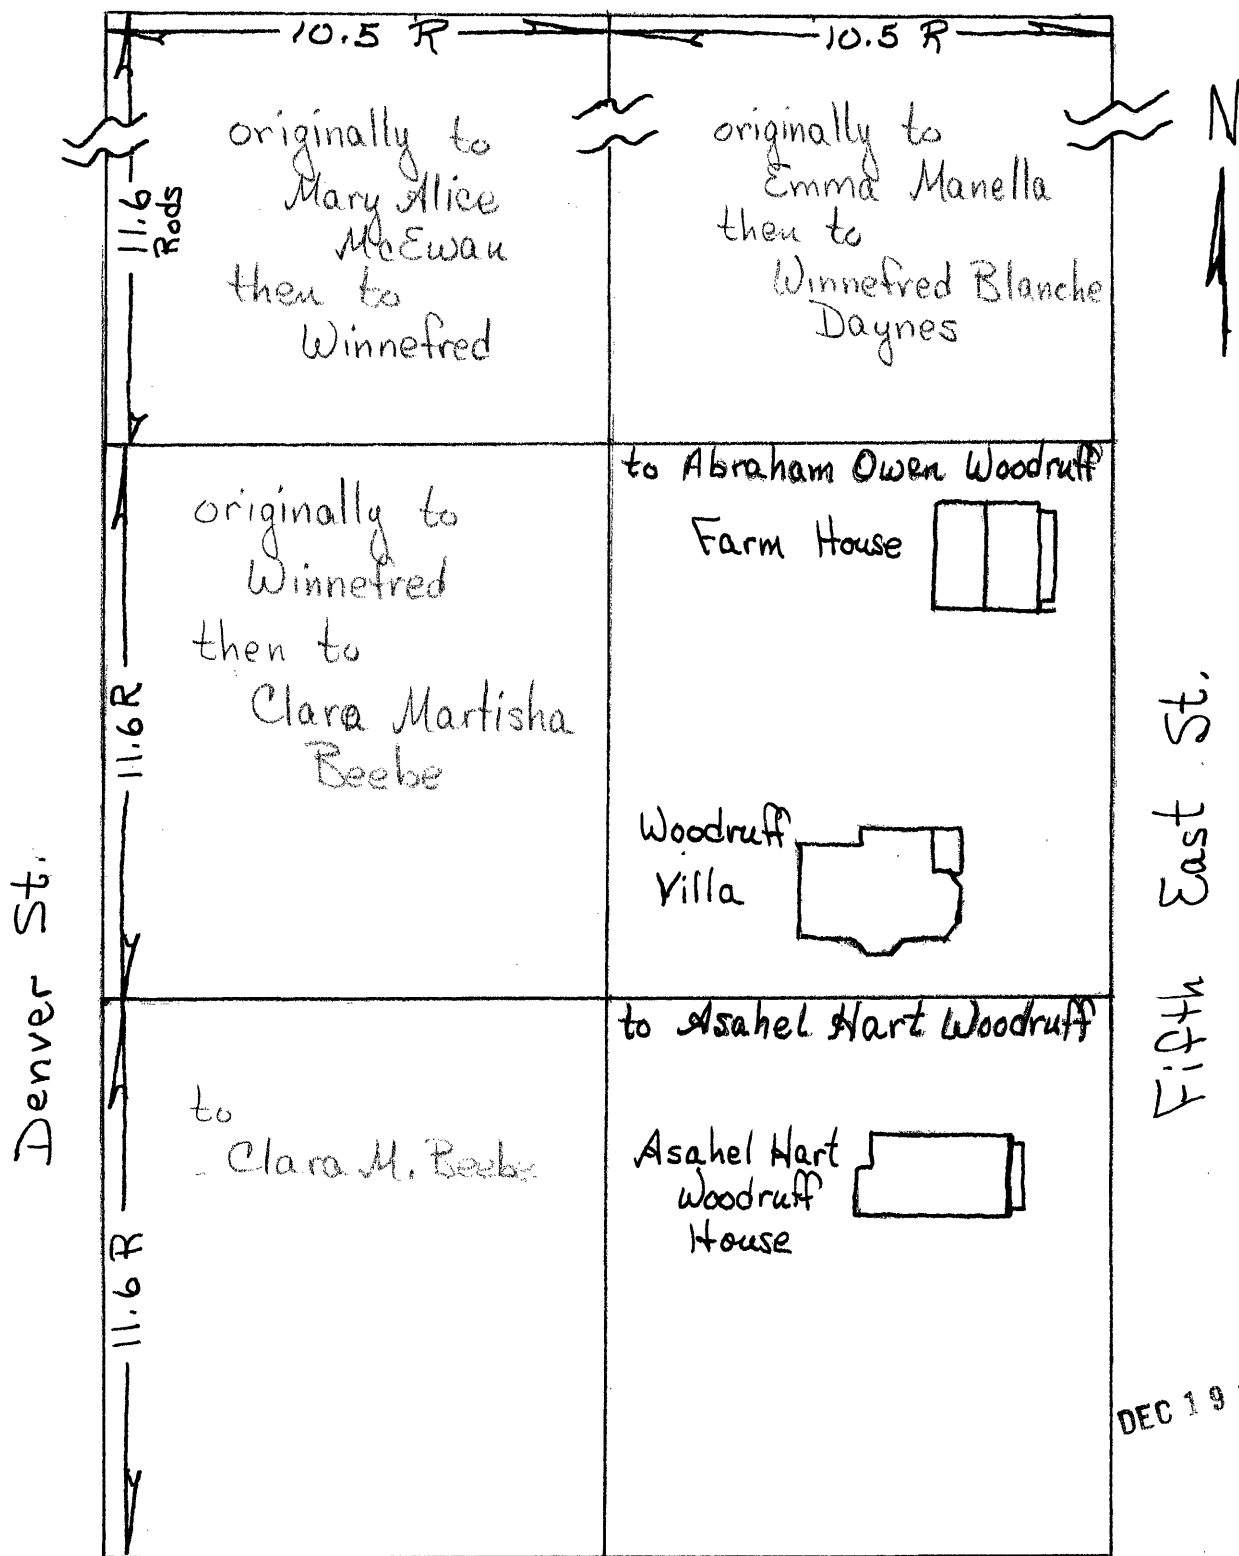 10.5 R
10.5 R
N
11.6
Rods
originally to
Mary Alice
McEwan
then to
Winnefred
originally to
Emma Manella
then to
Winnefred Blanche
Daynes
11.6 R
originally to
Winnefred
then to
Clara Martisha
Beebe
to Abraham Owen Woodruff
Farm House
Woodruff
Villa
Denver St.
Fifth East St.
11.6 R
to
Clara M. Beebe
to Asahel Hart Woodruff
Asahel Hart
Woodruff
House
DEC 19